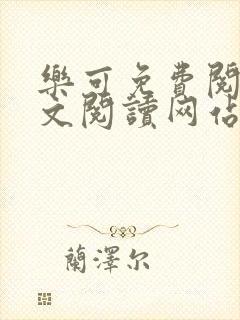 樂可免費閱
文閱讀网佔
蘭澤尔